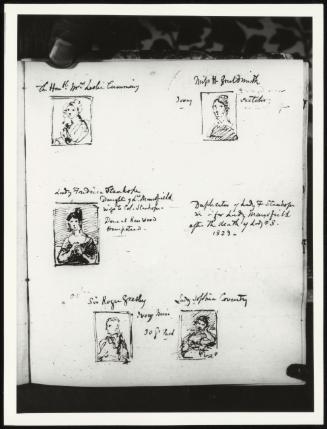 The Honble Mrs Leslie Cumming
Miss H Gouldsmith
Ivory
Sketches
Lady Fredrica Stanhope
Daughter of Ld Mansfield
wife to Col. Stanhope
Done at Kenwood
Hampstead.
Duplicate of Lady F Stanhope
for Lady Mansfield
after the death of Lady F S.
1823
Sir Roger Gresley
Lady Sophia Coventry
Ivory
30 Gs Paid